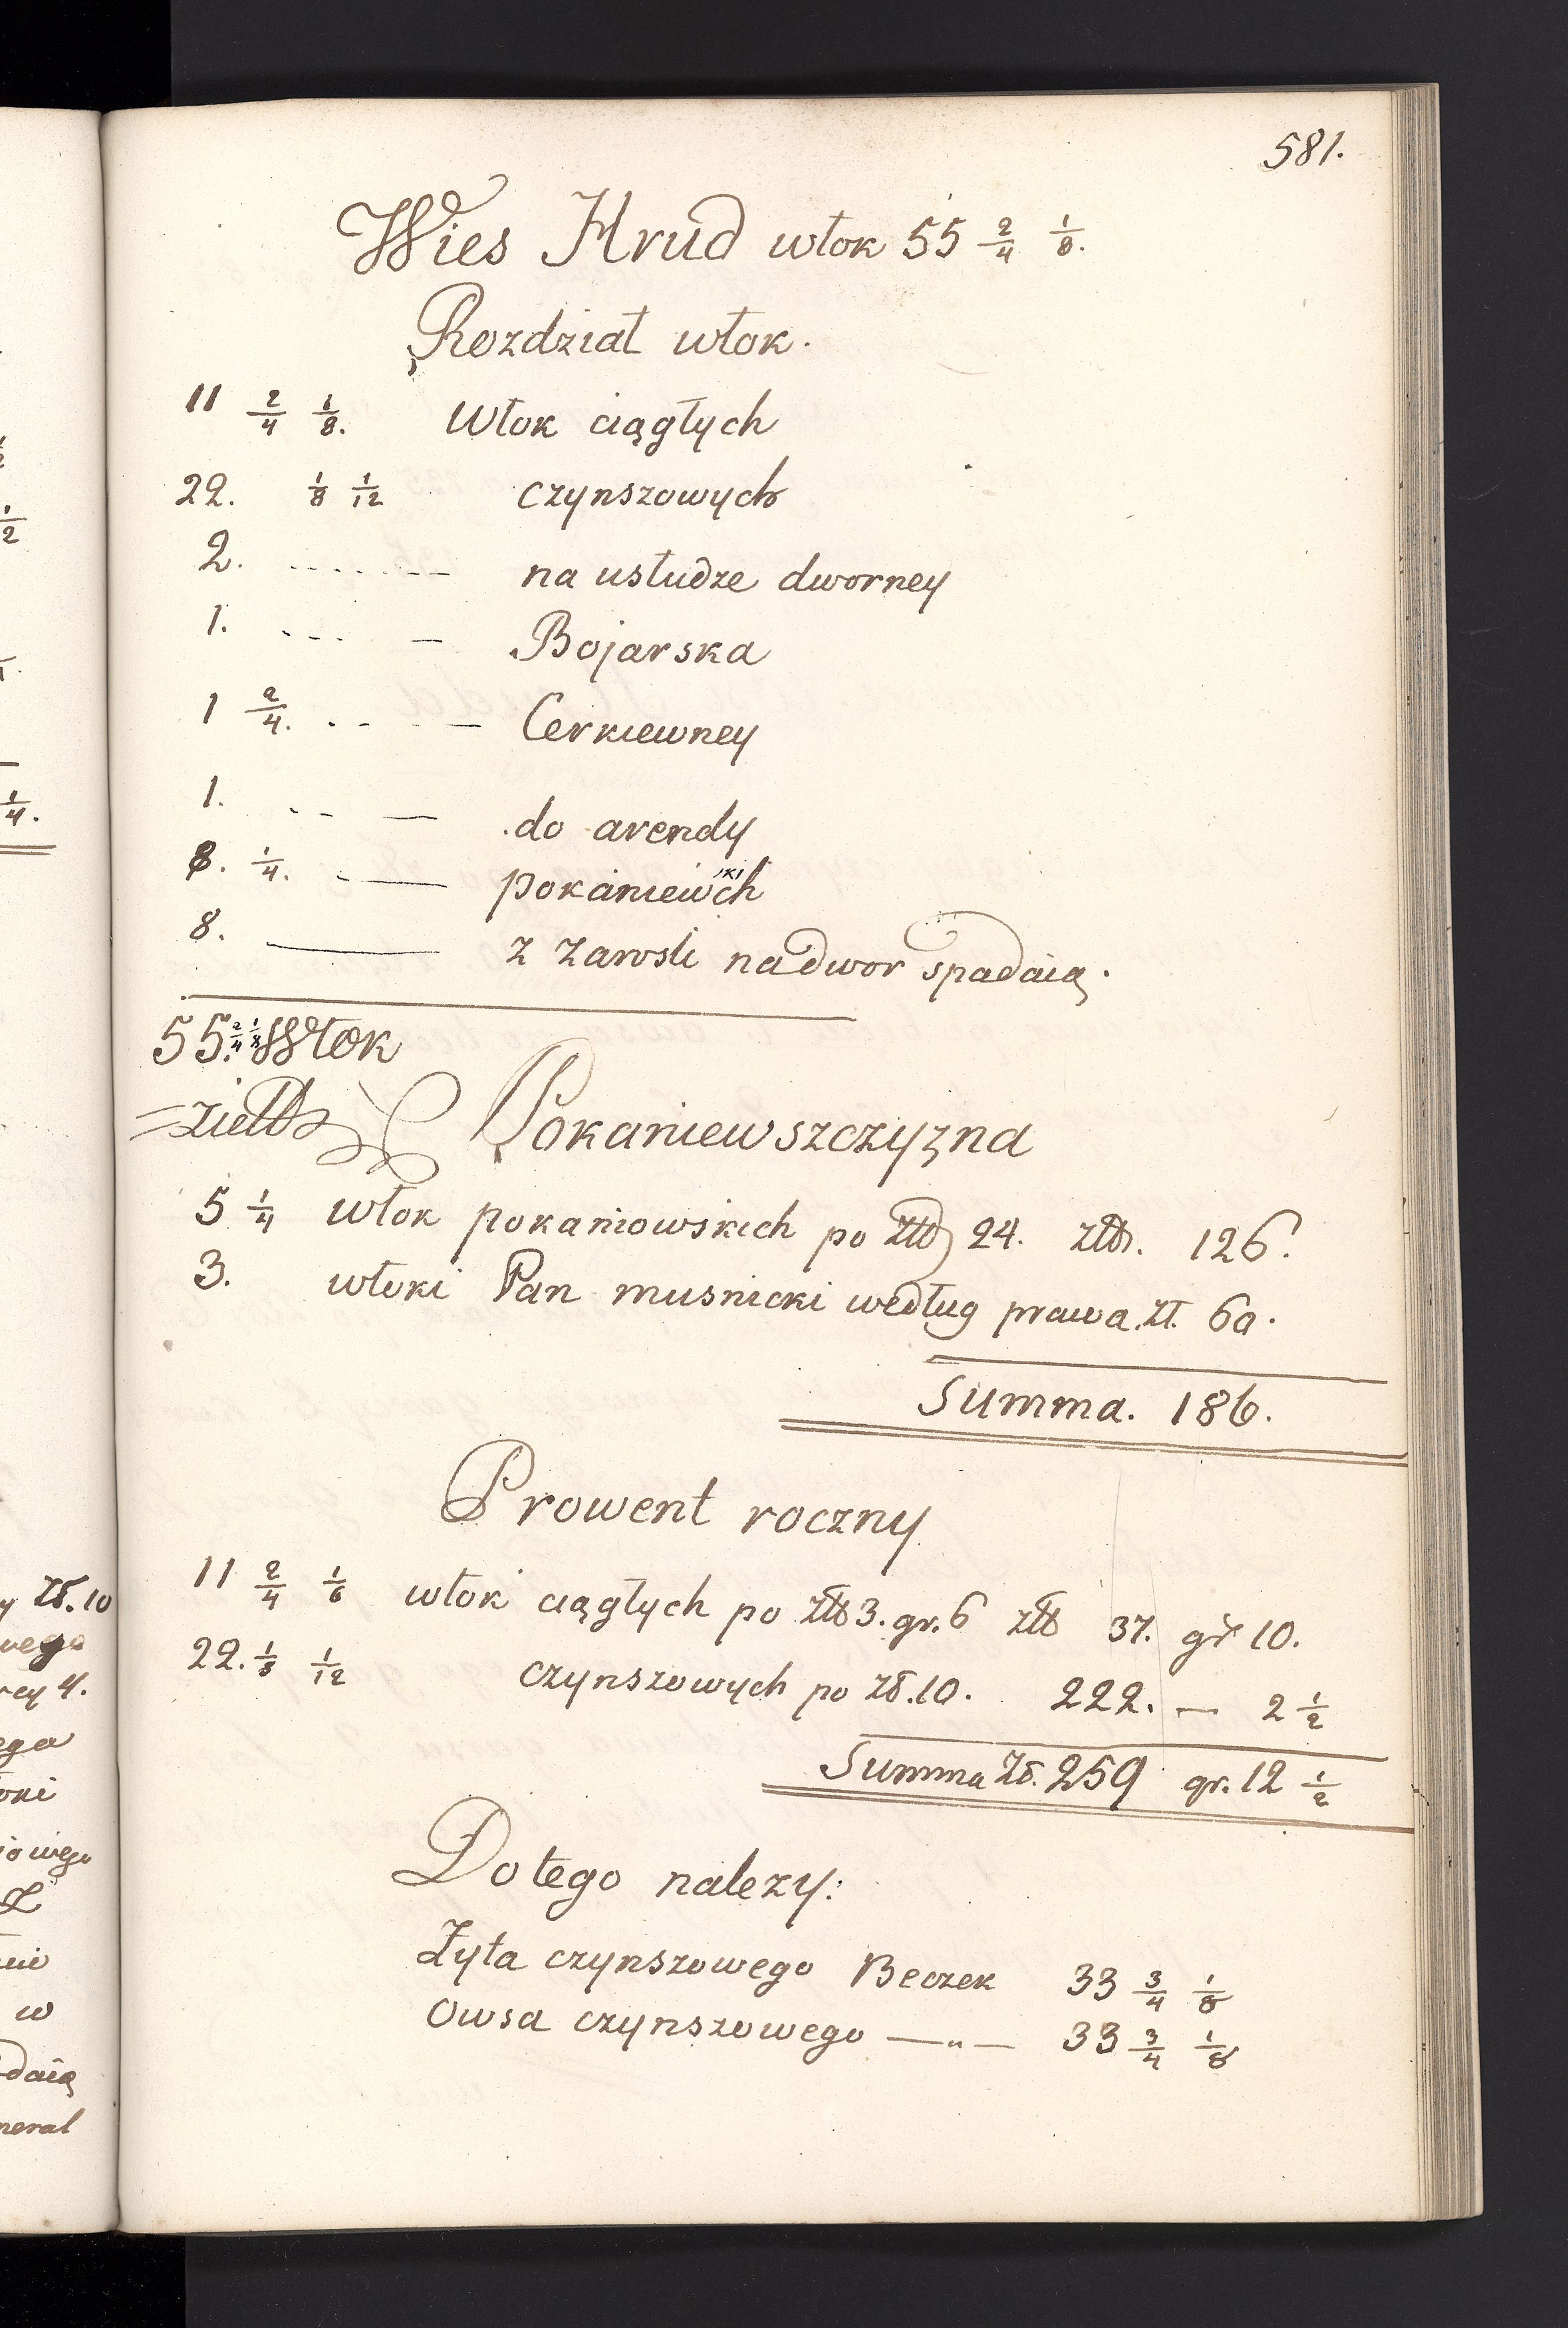 581.
Wies Hrud włok 55 2/4 1/8.
Rozdział włok.
11 2/4 1/8. Włok ciągłych
22. 1/8 1/12 czynszowych
2. ....... — na usłudze dworney
1. ... — Bojarska
1 2/4. ... — Cerkiewney
1. ... — do arendy
8. 1/4. — pokaniewskich
8. — z Zarosli na dwor spadaią.
55. 2/4 1/8 Włok
Pokaniewszczyzna
5 1/4 włok pokaniowskich po złł 24. złł. 126.
3. włoki Pan musnicki według prawa. zł. 60.
Summa. 186.
Prowent roczny
11 2/4 1/6 włok ciągłych po złł 3. gr. 6 złł 37. gr 10.
22. 1/8 1/12 czynszowych po zł. 10. 222. — 2 1/2
Summa zł. 259 gr. 12 1/2
Do tego nalezy:
Żyta czynszowego Beczek 33 3/4 1/8
Owsa czynszowego —"— 33 3/4 1/8